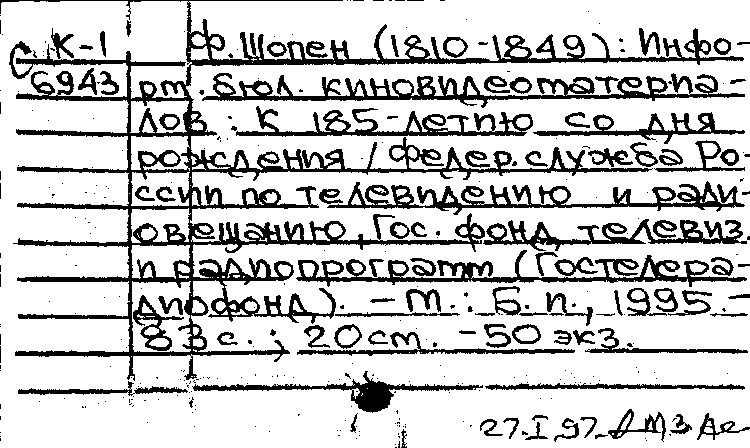 К-1 Ф. Шопен (1810-1849): Инфо-
С 6943 рм. бюл. киновидеоматериа-
лов : К 185-летию со дня
рождения / Федер. служба Ро-
ссии по телевидению и ради-
овещанию, Гос. фонд телевиз.
и радиопрограмм (Гостелера-
диофонд). - М. : Б. и., 1995. -
83 с. ; 20 см. - 50 экз.
27.I.97.